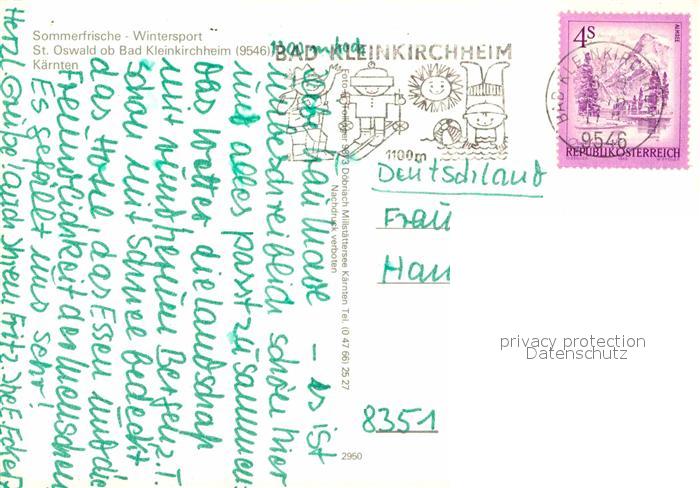 Sommerfrische - Wintersport
St. Oswald ob Bad Kleinkirchheim (9546) 1300 m hoch
Kärnten
BAD KLEINKIRCHHEIM
1100m
ALMSEE
4S
REPUBLIK ÖSTERREICH
BAD KLEINKIRCHHEIM
9546
Liebe Frau Maue – es ist
unbeschreiblich schön hier
und alles passt zusammen
das Wetter die Landschaft
mit wundervollen Bergen z. T.
schon mit Schnee bedeckt
das Hotel das Essen und die
Freundlichkeit der Menschen
Es gefällt uns sehr!
Herzl. Grüße (auch Ihrem Fritz) Ihre E.
9873 Döbriach Millstättersee Kärnten Tel. (0 47 66) 25 27
Nachdruck verboten
2950
Deutschland
Frau
Han
8351
privacy protection
Datenschutz